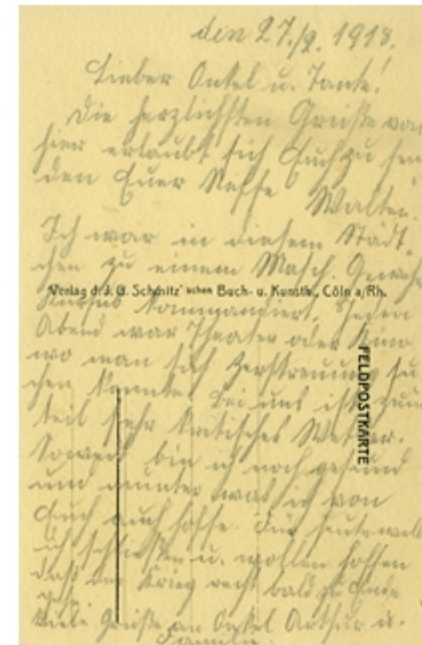 den 27./9. 1918.
Lieber Onkel u. Tante!
Die herzlichsten Grüße von
hier erlaubt sich Euch zu sen
den Euer Neffe Walter.
Ich war in diesem Städt
chen zu einem Masch. Gewehr
Verlag d. J. G. Schmitz' schen Buch- u. Kunsth., Cöln a/Rh.
Kursus kommandiert. Jeden
Abend war Theater oder Kino
wo man sich zerstreuen
chen konnte. Bei uns ist zum
FELDPOSTKARTE
teil sehr kritisches Wetter.
Soweit bin ich noch gesund
und munter was ich von
Euch auch hoffe. Für heute will
ich schließen u. wollen hoffen
daß der Krieg recht bald zu Ende
Viele Grüße an Onkel Arthur u.
Familie.